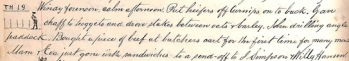 TH 19 Windy forenoon, calm afternoon. Put heifers off turnips on to back. Gave
chaff to hoggets and drove stakes between oats & barley. John drilling angle
paddock. Bought a piece of beef at butchers cart for the first time for many
Mam & Eva just gone with sandwiches to a send-off to J. Simpson & Willy Hansen